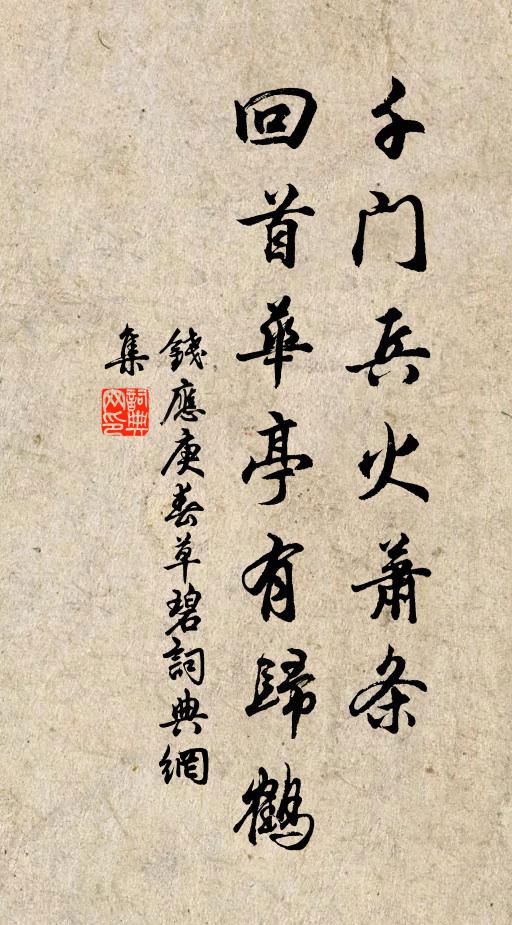 千门兵火蕭条
回首華亭有歸鶴
錢應庚春草碧詞典網
集
詞典網印